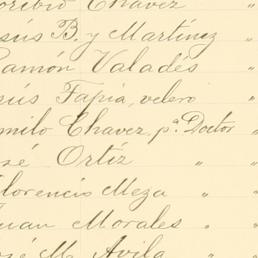 oribio Chavez "
esús B. y Martinez "
Ramón Valadés "
esús Tapia, velero "
amilo Chavez, pª. Doctor "
osé Ortíz "
Florencio Meza "
Juan Morales "
José M. Avila "